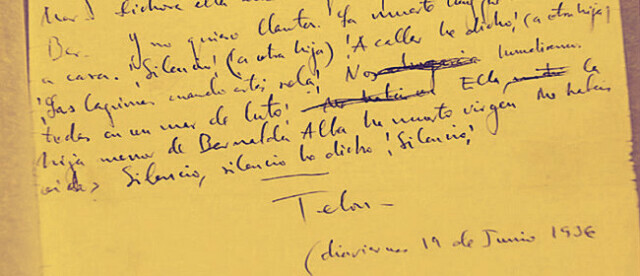 Mar! Dichosa ella
Bar. Y no quiero llantos. La muerte hay que
a cara. ¡Silencio! (a otra hija) ¡A callar he dicho! (a otra hija)
¡Las lagrimas cuando estés sola! Nos hundiremos
todas en un mar de luto! Ella, la
hija menor de Bernalda Alba ha muerto virgen Me habeis
oido? Silencio, silencio he dicho ¡Silencio!
Telon—
(dia viernes 19 de Junio 1936